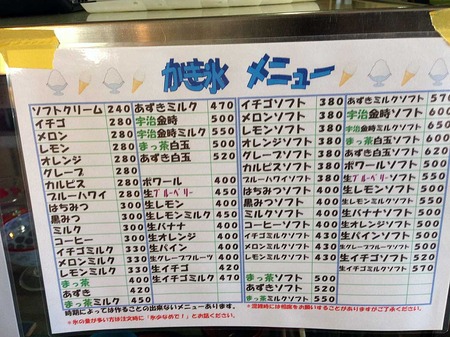 かき氷 メニュー
ソフトクリーム 240
イチゴ 280
メロン 280
レモン 280
オレンジ 280
グレープ 280
カルピス 280
ブルーハワイ 280
はちみつ 300
黒みつ 300
ミルク 300
コーヒー 300
イチゴミルク 330
メロンミルク 330
レモンミルク 330
まっ茶 400
あずき 420
まっ茶ミルク 450
あずきミルク 470
宇治金時 500
宇治金時ミルク 550
まっ茶白玉 500
あずき白玉 520
ボワール 400
生ブルーベリー 450
生レモン 400
生レモンミルク 450
生バナナ 400
生オレンジ 400
生パイン 400
生グレープフルーツ 400
生イチゴ 420
生イチゴミルク 470
イチゴソフト 380
メロンソフト 380
レモンソフト 380
オレンジソフト 380
グレープソフト 380
カルピスソフト 380
ブルーハワイソフト 380
はちみつソフト 400
黒みつソフト 400
ミルクソフト 400
コーヒーソフト 400
イチゴミルクソフト 430
メロンミルクソフト 430
レモンミルクソフト 430
まっ茶ソフト 500
あずきソフト 520
まっ茶ミルクソフト 550
あずきミルクソフト 570
宇治金時ソフト 600
宇治金時ミルクソフト 650
まっ茶白玉ソフト 600
あずき白玉ソフト 620
ボワールソフト 500
生ブルーベリーソフト 550
生レモンソフト 500
生レモンミルクソフト 550
生バナナソフト 500
生オレンジソフト 500
生パインソフト 500
生グレープフルーツソフト 500
生イチゴソフト 520
生イチゴミルクソフト 570
時期によっては作ることの出来ないメニューあります。
※氷の量が多い方は注文時に「氷少なめで!」とお話ください。
※混雑時には相席をお願いすることがありますがご了承ください。